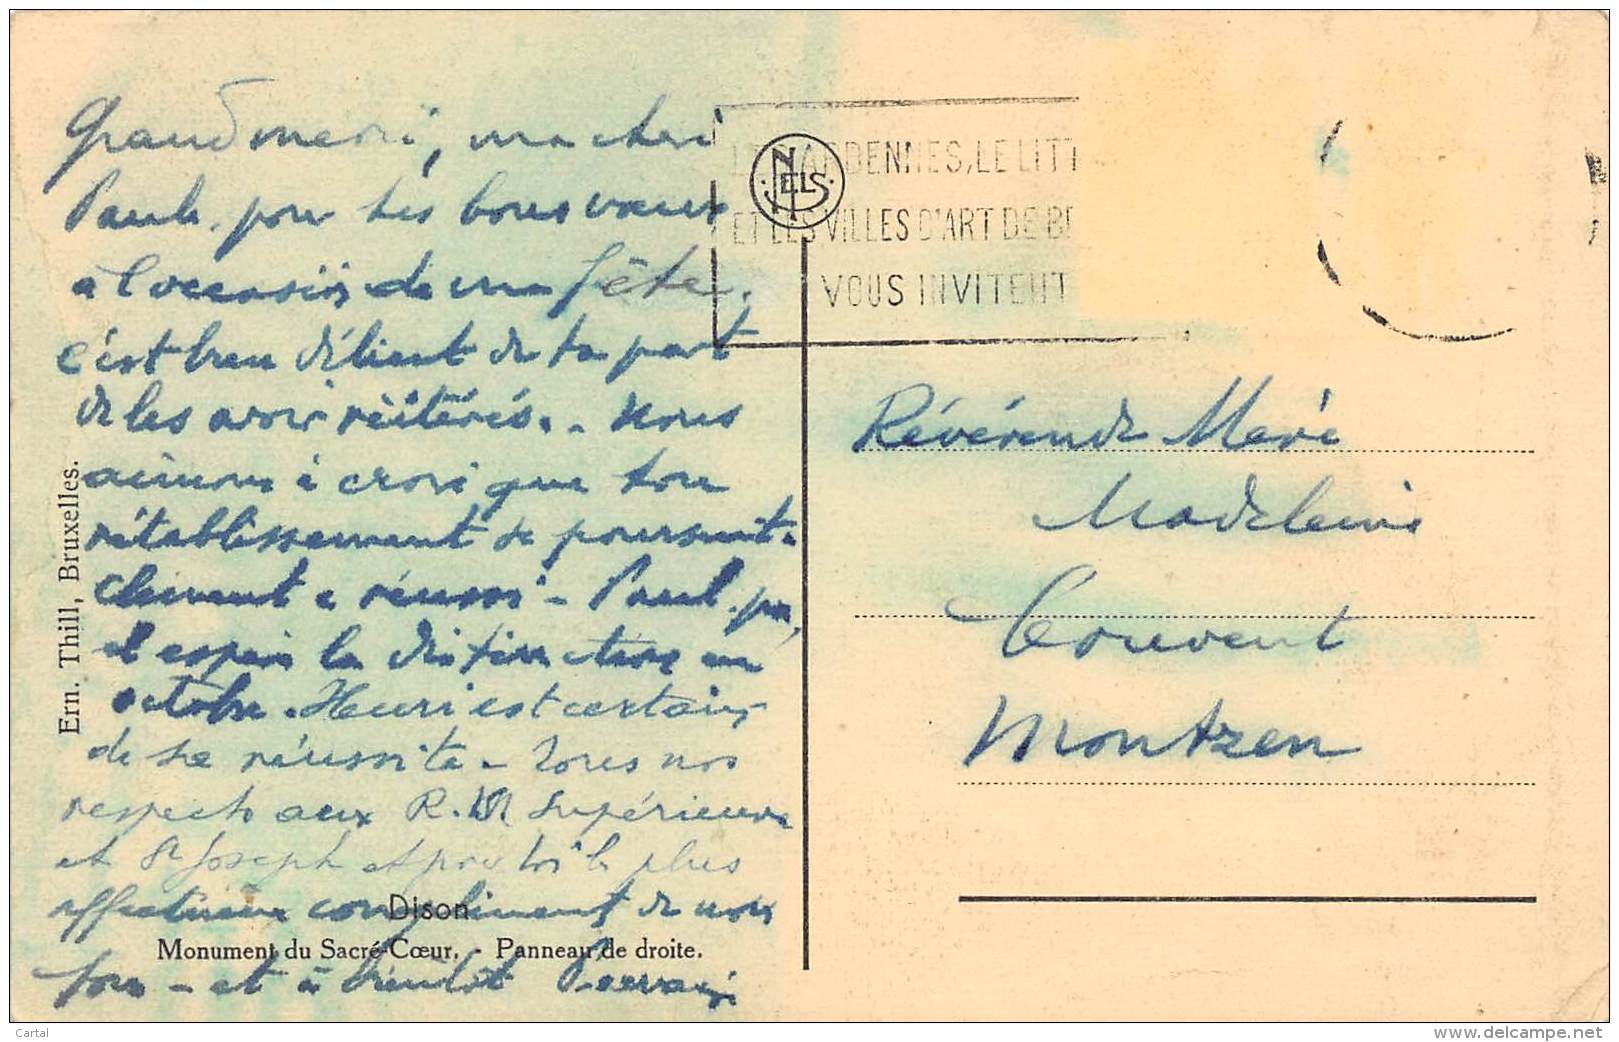 Grand merci, ma chère
Paule, pour tes bons vœux
à l'occasion de ma fête.
c'est bien délicat de ta part
de les avoir réitérés. - Nous
aimons à croire que ton
rétablissement se poursuit -
a réussi - Paul,
espère la distinction en
octobre. Henri est certain
de sa réussite - Tous nos
respects aux R. M Supérieure
et St Joseph et pour toi le plus
affectueux compliment de nous
tous - et à bientôt
Ern. Thill, Bruxelles.
Dison
Monument du Sacré-Cœur. - Panneau de droite.
NELS
ARDENNES, LE LITT
ET LES VILLES D'ART DE BE
VOUS INVITENT
Révérende Mère
Madeleine
Couvent
Montzen
Cartal
www.delcampe.net